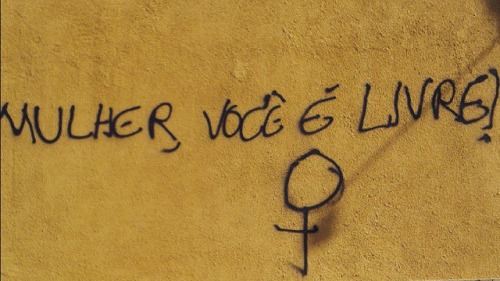 MULHER, VOCÊ É LIVRE!